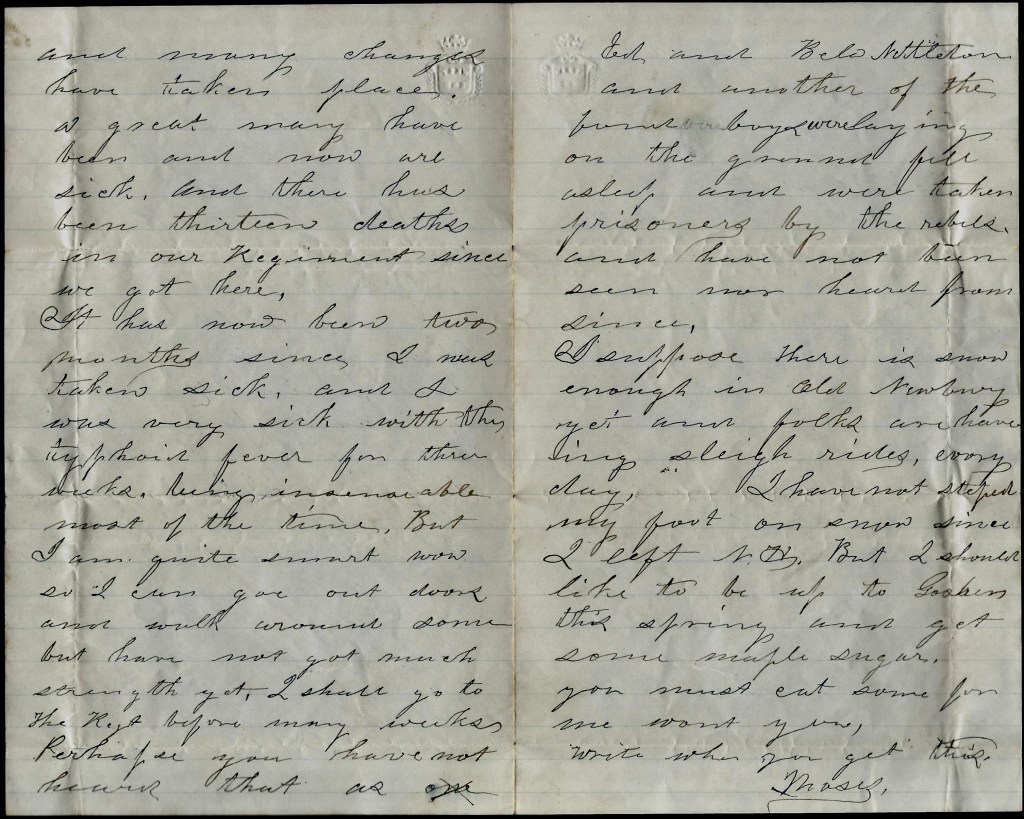 and many changes
have taken place.
a great many have
been and now are
sick. and there has
been thirteen deaths
in our Regiment since
we got here,
It has now been two
months since I was
taken sick. and I
was very sick with the
typhoid fever for three
weeks. being insenceable
most of the time, But
I am quite smart now
so I can goe out doors
and walk around some
but have not got much
strength yet, I shall go to
the Regt before many weeks
Perhapse you have not
heard that as
Ed. and Belo Nettleton
and another of the
band boys were laying
on the ground fell
asleep and were taken
prisoners by the rebels.
and have not been
seen nor heard from
since,
I suppose there is snow
enough in Old Newbury
yet and folks are have
ing sleigh rides, every
day, I have not steped
my foot on snow since
I left N.H. But I should
like to be up to Goshen
this spring and get
some maple sugar.
you must eat some for
me wont you,
write when you get this.
Moses.